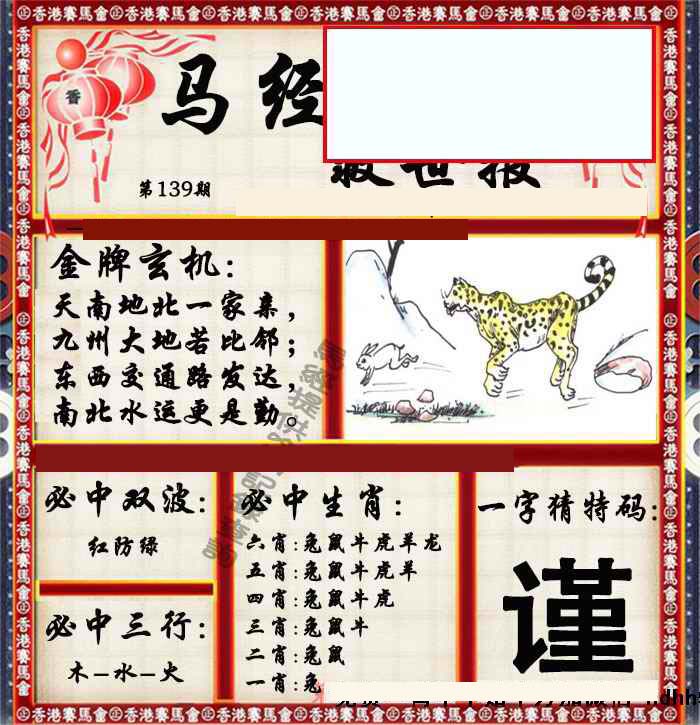 香港賽馬會
马经
救世报
第139期
金牌玄机:
天南地北一家亲，
九州大地若比邻；
东西交通路发达，
南北水运更是勤。
必中双波:
红防绿
必中三行:
木–水–火
必中生肖:
六肖:兔鼠牛虎羊龙
五肖:兔鼠牛虎羊
四肖:兔鼠牛虎
三肖:兔鼠牛
二肖:兔鼠
一肖:兔
一字猜特码:
谨